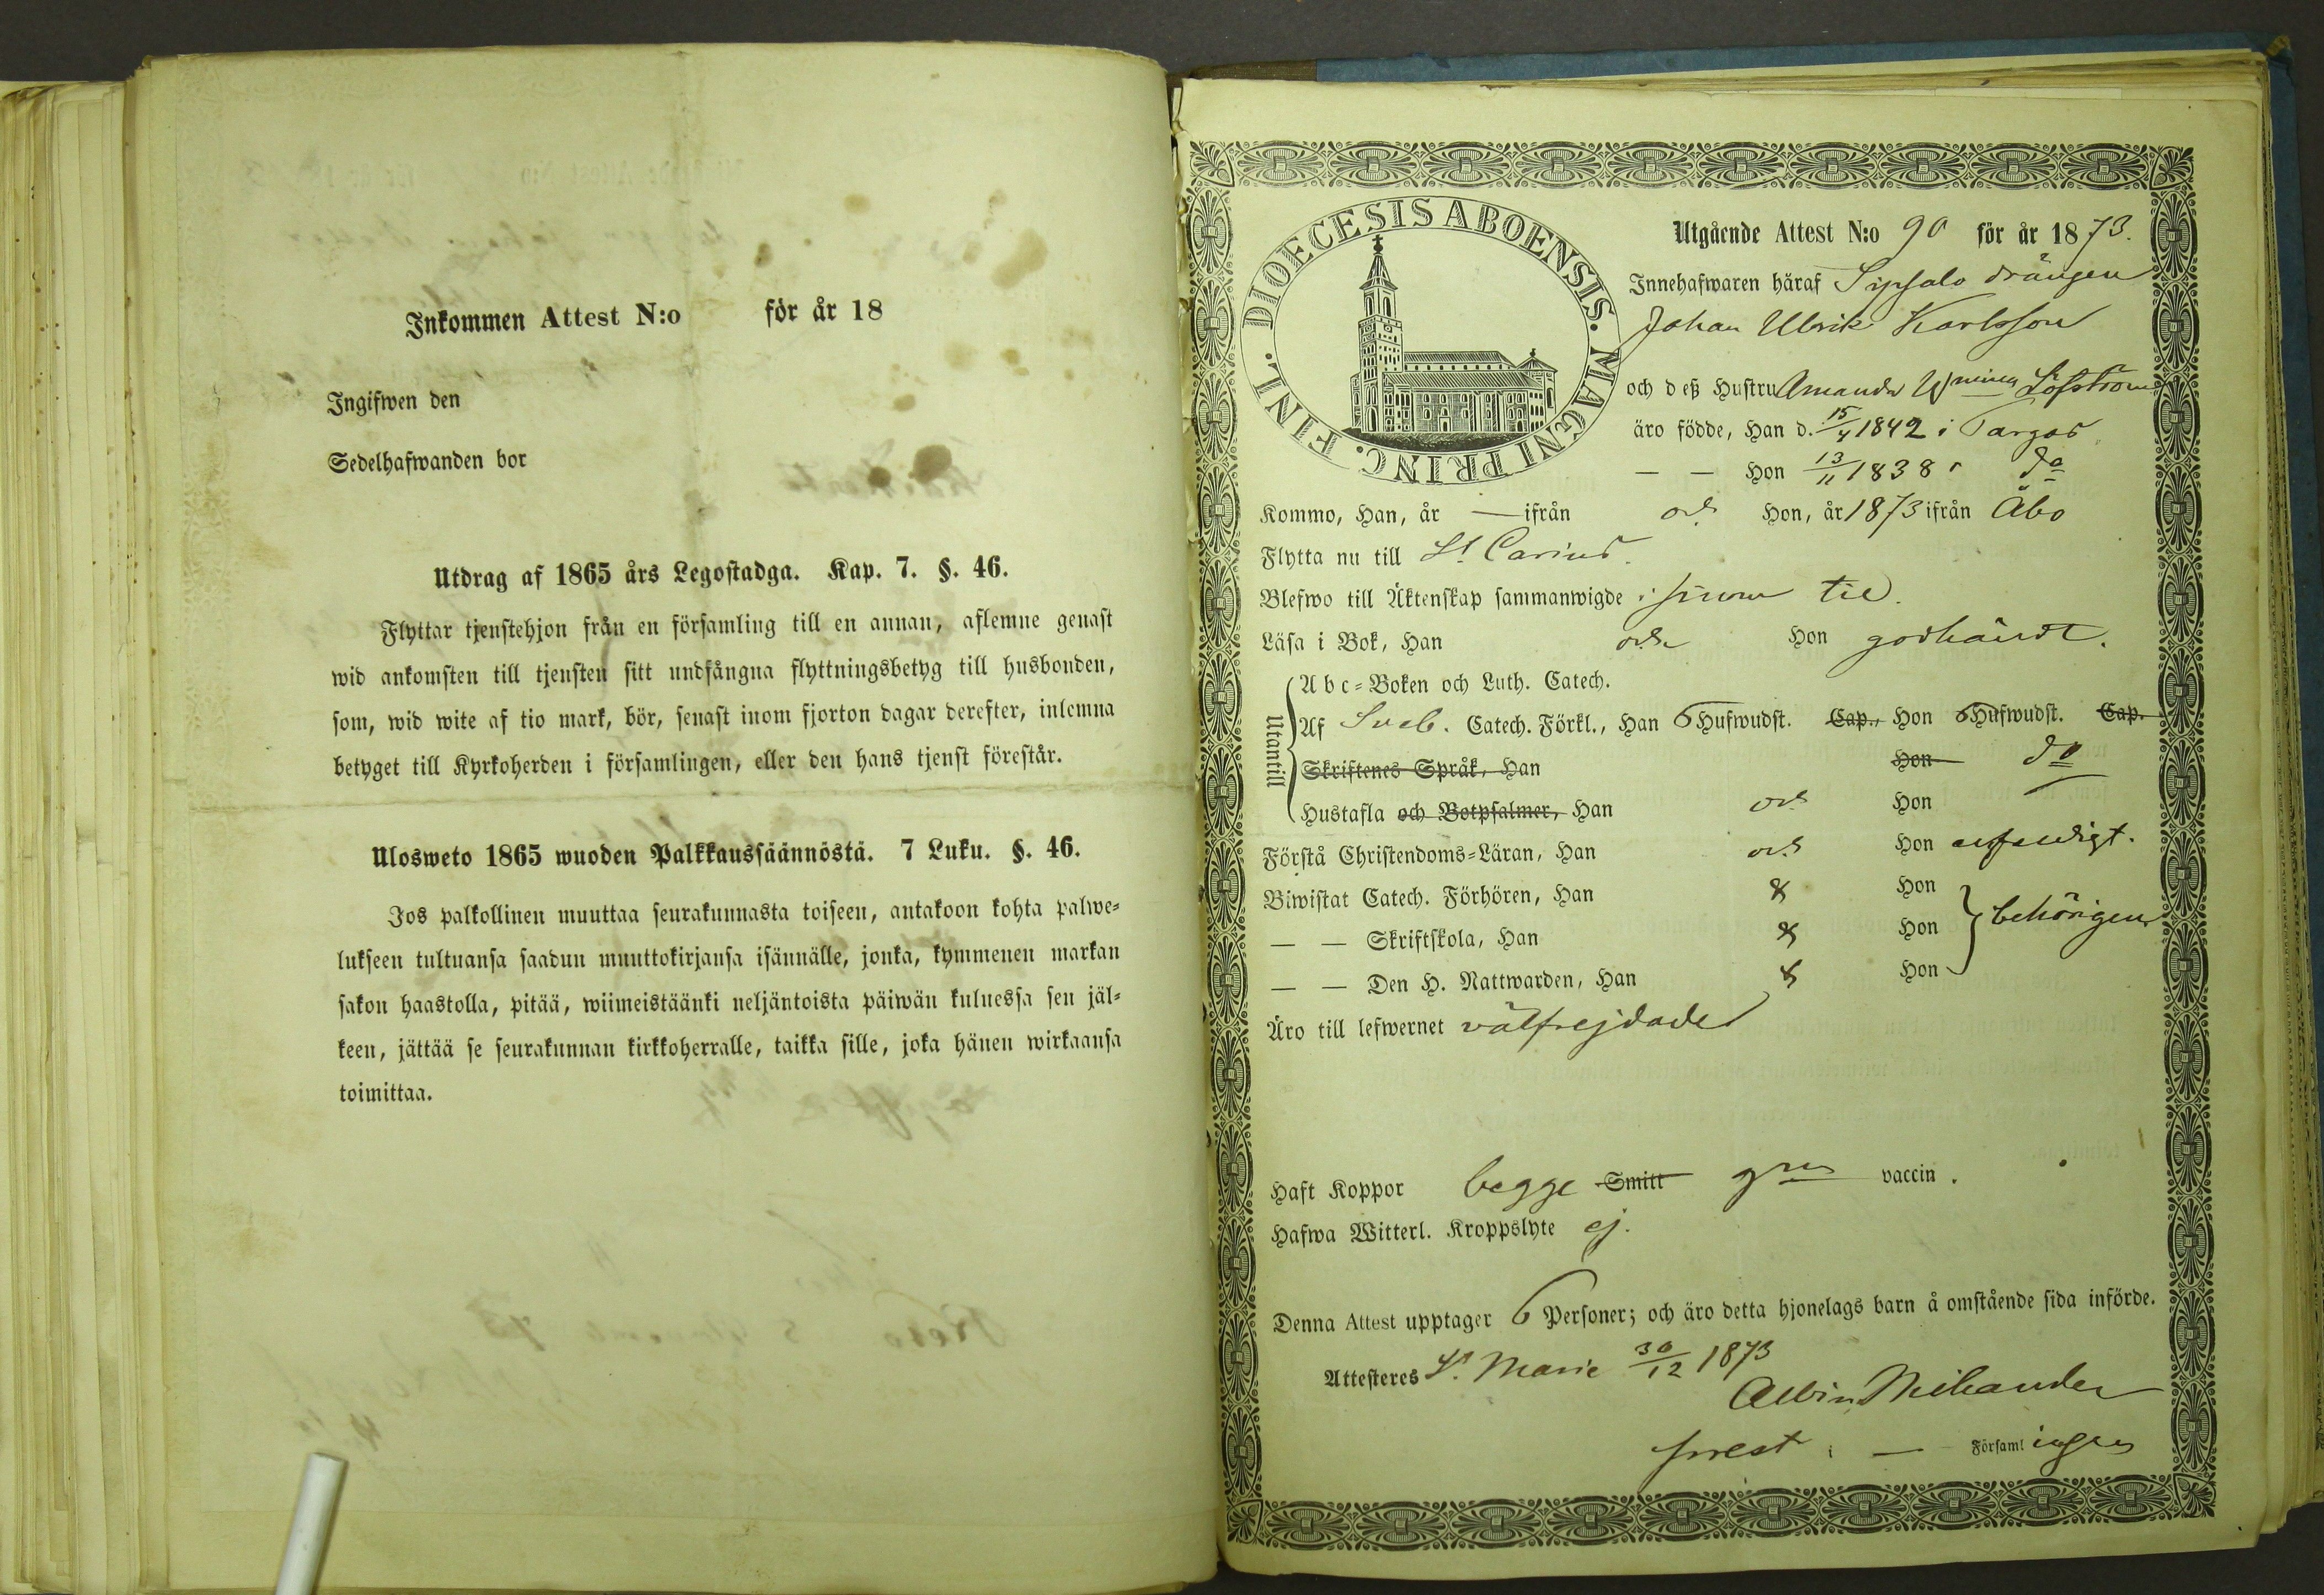 Inkommen Attest N:o för år 18
Ingifwen den
Sedelhafwanden bor
Utdrag af 1865 års Legostadga. Kap. 7. §. 46.
Flyttar tjenstehjon från en församling till en annan, aflemne genast
wid ankomsten till tjensten sitt undfångna flyttningsbetyg till husbonden,
som, wid wite af tio mark, bör, senast inom fjorton dagar derefter, inlemna
betyget till Kyrkoherden i församlingen, eller den hans tjenst förestår.
Ulosweto 1865 wuoden Palkkaussäännöstä. 7 Luku. §. 46.
Jos palkollinen muuttaa seurakunnasta toiseen, antakoon kohta palwe-
lukseen tultuansa saadun muuttokirjansa isännälle, jonka, kymmenen markan
sakon haastolla, pitää, wiimeistäänki neljäntoista päiwän kuluessa sen jäl-
keen, jättää se seurakunnan kirkkoherralle, taikka sille, joka hänen wirkaansa
toimittaa.
DIOECESIS ABOENSIS. MAGNI PRINC. FINL.
Utgående Attest N:o 90 för år 1873.
Innehafwaren häraf Sipsalo drängen
Johan Ulrik Karlsson
och deß Hustru Amanda Wmina Löfström
äro födde, Han d. 15/4 1842 i Pargas
— — Hon 13/11 1838 i do
Kommo, Han, år — ifrån och Hon, år 1873 ifrån Åbo
Flytta nu till St Carins.
Blefwo till Äktenskap sammanwigde i sinom tid.
Läsa i Bok, Han och Hon godkändt.
Utantill
Abc-Boken och Luth. Catech.
Af Sveb. Catech. Förkl., Han 6 Hufwudst. Cap., Hon 6 Hufwudst. Cap.
Skriftenes Språk, Han Hon do
Hustafla och Botpsalmer, Han och Hon
Förstå Christendoms-Läran, Han och Hon enfaldigt.
Biwistat Catech. Förhören, Han & Hon
— — Skriftskola, Han & Hon behörigen
— — Den H. Nattwarden, Han & Hon
Äro till lefwernet välfrejdade
Haft Koppor begge Smitt gm vaccin.
Hafwa Witterl. Kroppslyte ej.
Denna Attest upptager 6 Personer; och äro detta hjonelags barn å omstående sida införde.
Attesteres St. Marie 30/12 1873
Albin Mihander
prest i — Församlingen